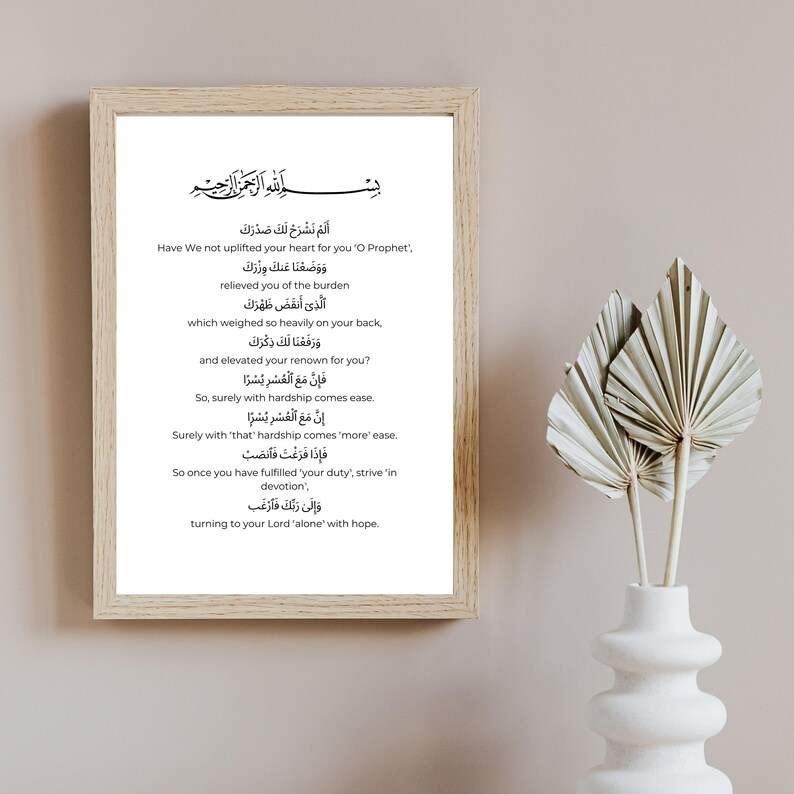 بِسْمِ اللهِ الرَّحْمٰنِ الرَّحِيْمِ
أَلَمْ نَشْرَحْ لَكَ صَدْرَكَ
Have We not uplifted your heart for you ˹O Prophet˺,
وَوَضَعْنَا عَنكَ وِزْرَكَ
relieved you of the burden
ٱلَّذِىٓ أَنقَضَ ظَهْرَكَ
which weighed so heavily on your back,
وَرَفَعْنَا لَكَ ذِكْرَكَ
and elevated your renown for you?
فَإِنَّ مَعَ ٱلْعُسْرِ يُسْرًا
So, surely with hardship comes ease.
إِنَّ مَعَ ٱلْعُسْرِ يُسْرًا
Surely with ˹that˺ hardship comes ˹more˺ ease.
فَإِذَا فَرَغْتَ فَٱنصَبْ
So once you have fulfilled ˹your duty˺, strive ˹in
devotion˺,
وَإِلَىٰ رَبِّكَ فَٱرْغَب
turning to your Lord ˹alone˺ with hope.